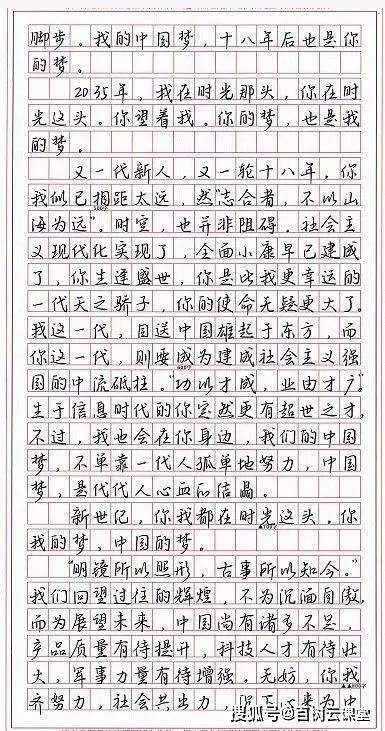 脚步。我的中国梦，十八年后也是你
的梦。
2035年，我在时光那头，你在时
光这头。你望着我。你的梦，也是我
的梦。
又一代新人，又一轮十八年。你
我似已相距太远，然“志合者，不以山
海为远”。时空，也并非阻碍。社会主
义现代化实现了，全面小康早已建成
了，你生逢盛世，你是比我更幸运的
一代天之骄子，你的使命无疑更大了。
我这一代，目送中国雄起于东方，而
你这一代，则要成为建成社会主义强
600字
国的中流砥柱。“功以才成，业由才广。”
生于信息时代的你定然更有超世之才，
不过，我也会在你身边，我们的中国
梦，不单靠一代人孤单地努力，中国
梦，是代代人心血的结晶。
新世纪，你我都在时光这头。你
▲700字
我的梦，中国的梦。
“明镜所以照形，古事所以知今。”
我们回望过往的辉煌，不为沉湎自傲，
而为展望未来，中国尚有诸多不足，
产品质量有待提升，科技人才有待壮
大，军事力量有待增强。无妨，你我
▲800字
齐努力，社会共出力，
为中
搜狐号@百闵云课堂